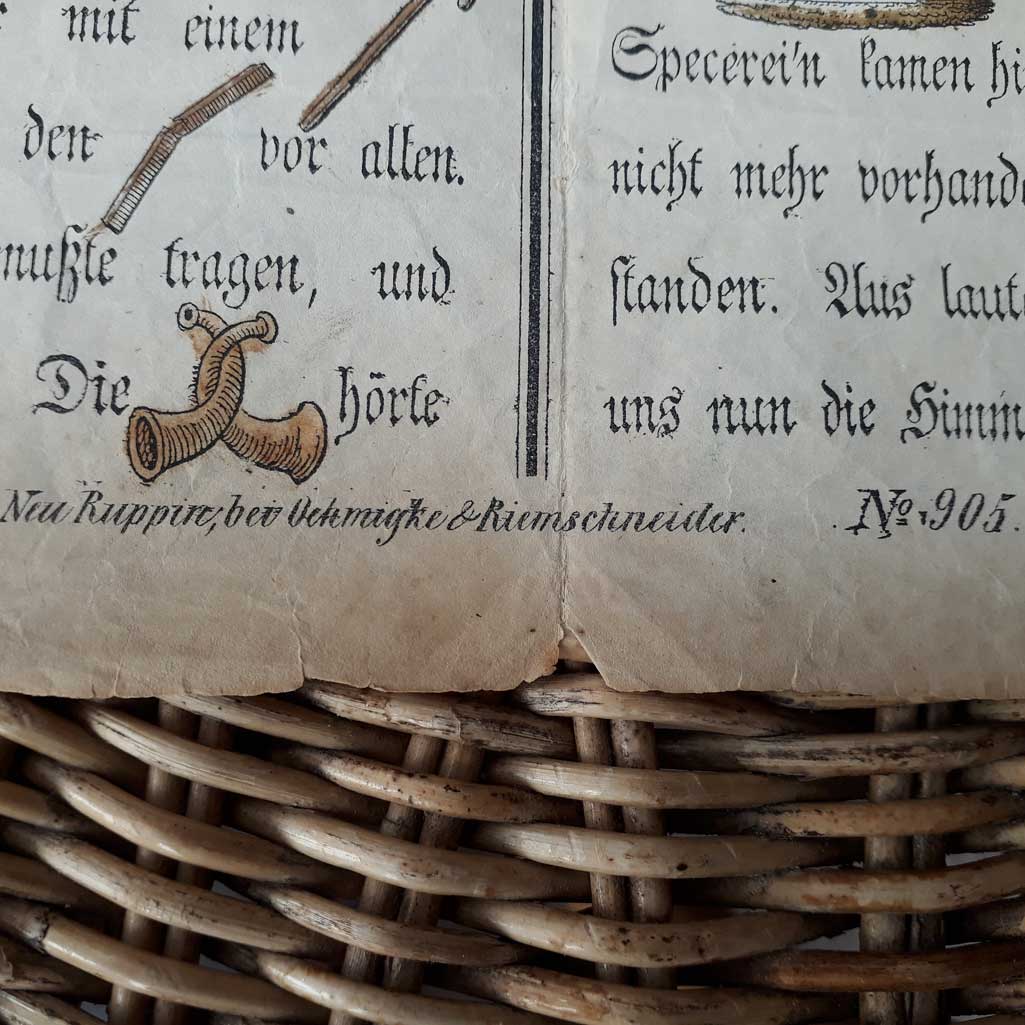 mit einem
den vor allen.
mußte tragen, und
Die hörte
Specerei'n kamen hi
nicht mehr vorhande
standen. Aus laut
uns nun die Himm
Neu Ruppin, bei Oehmigke & Riemschneider. No. 905.